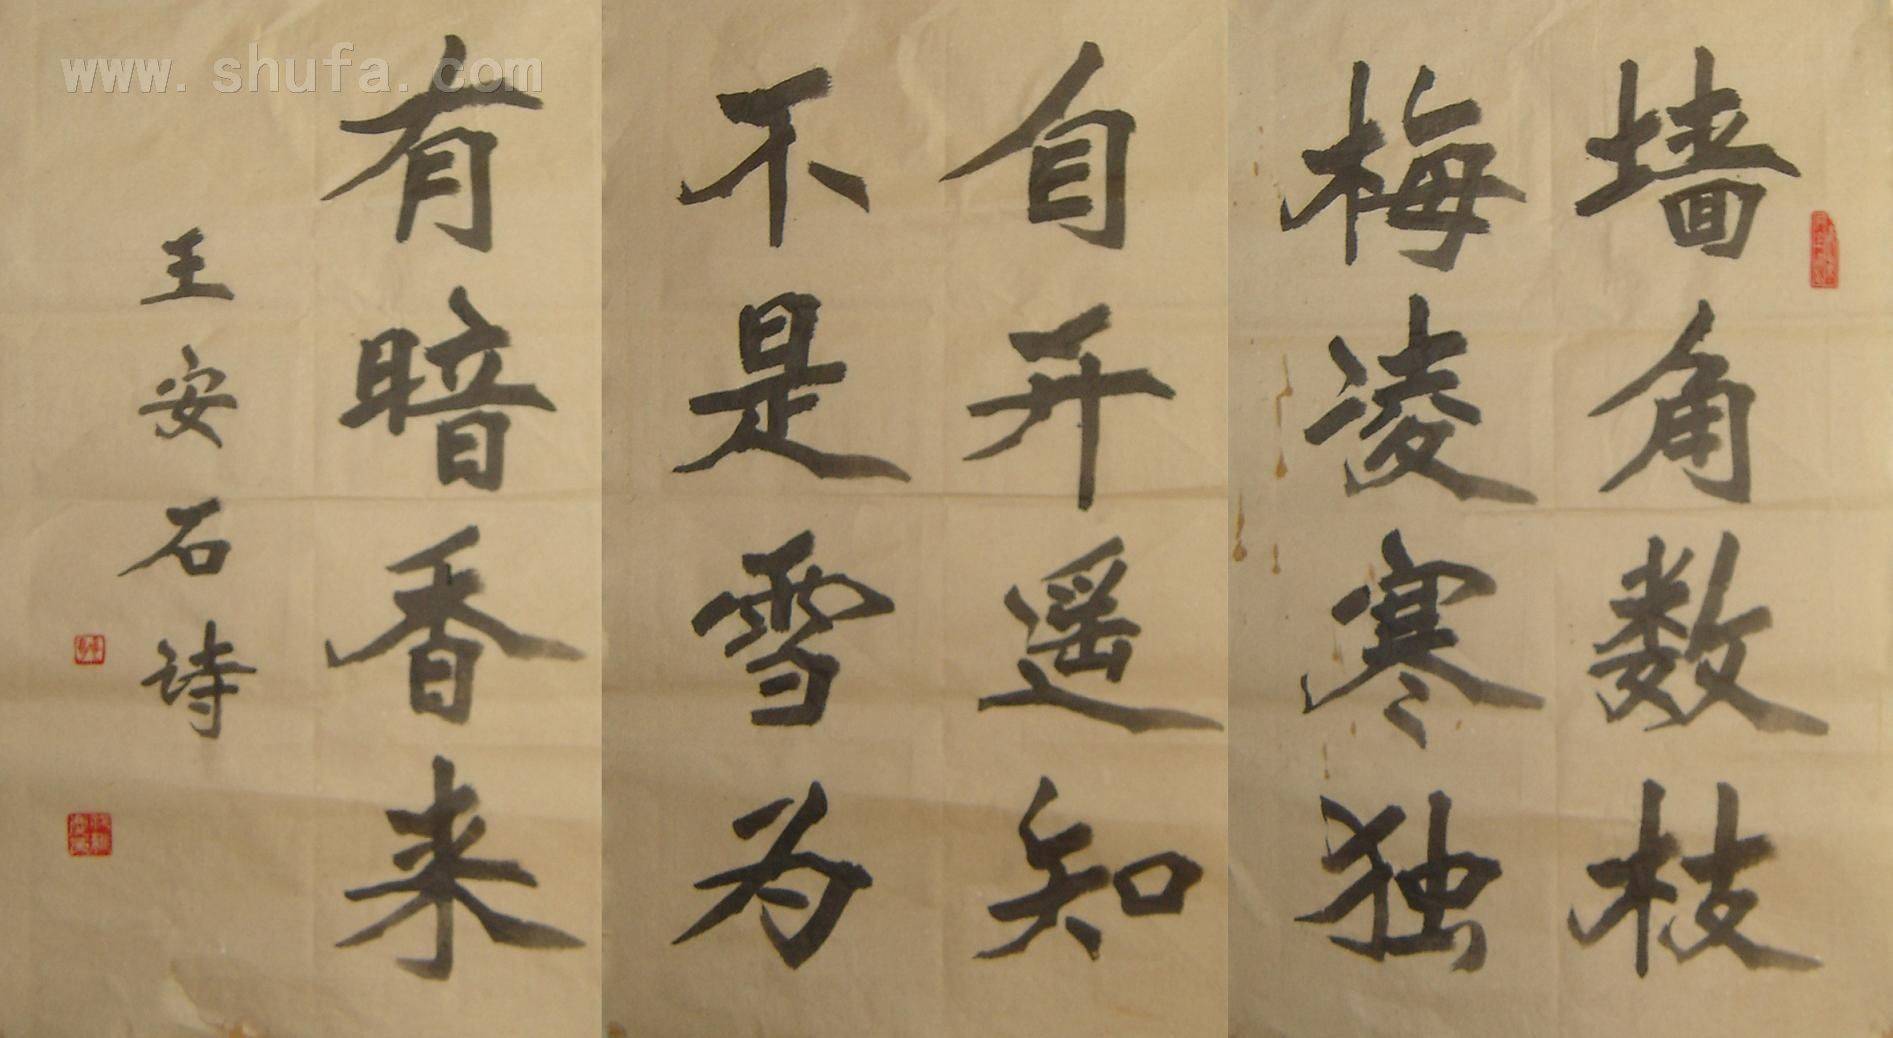 墙角数枝
梅凌寒独
自开遥知
不是雪为
有暗香来
王安石诗
www.shufa.com